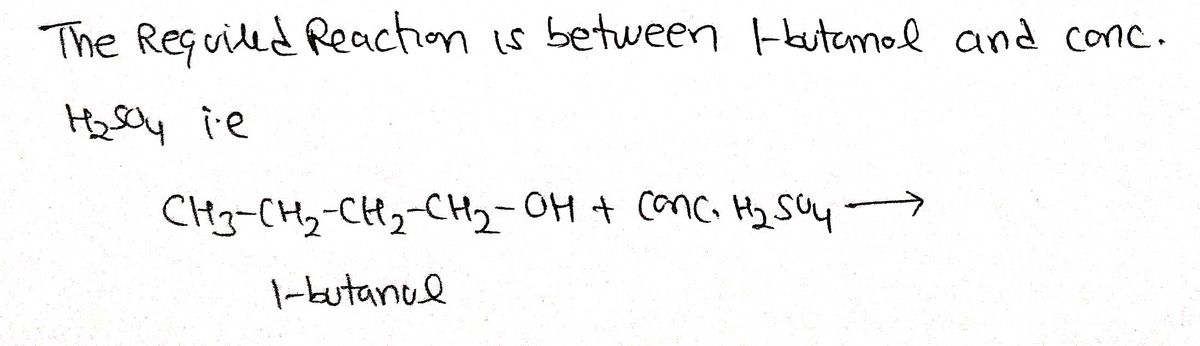 The Required Reaction is between 1-butanol and conc.
H₂SO₄ i.e
CH₃-CH₂-CH₂-CH₂-OH + conc. H₂SO₄ ⟶
1-butanol